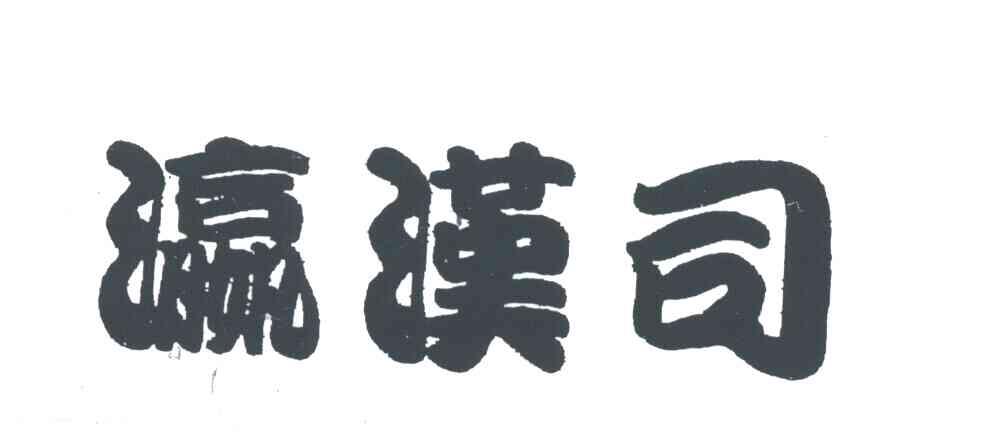 瀛漢司